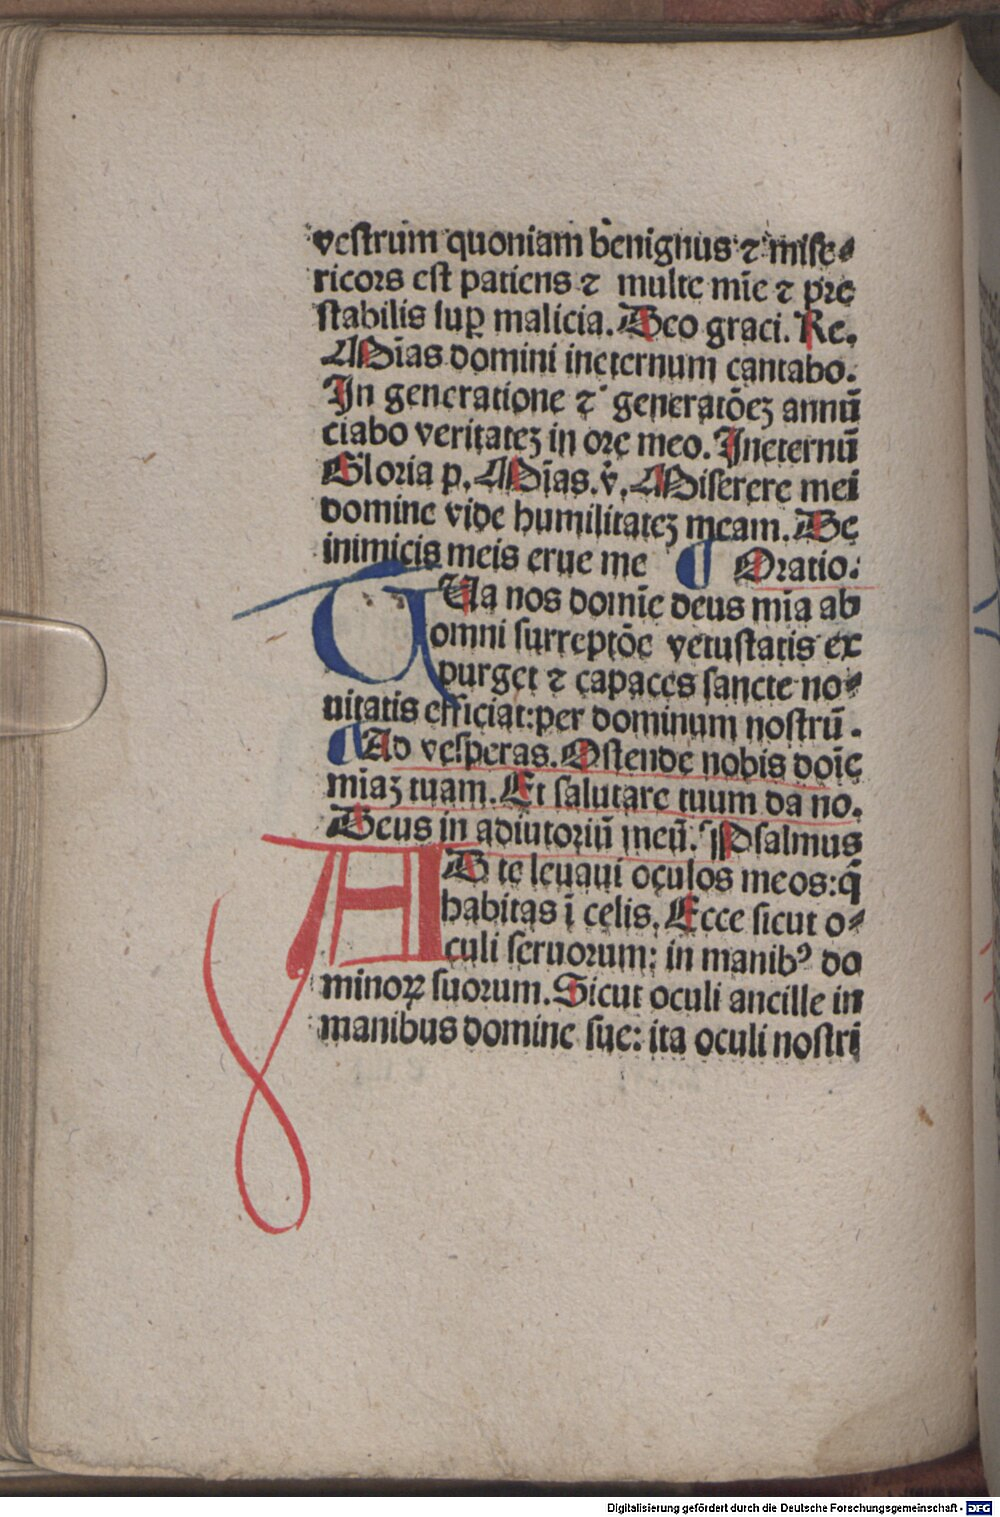 vestrum quoniam benignus ⁊ mise⸗
ricors est patiens ⁊ multe mīe ⁊ pre
stabilis suꝑ malicia. Deo graci. Re.
Mīas domini ineternum cantabo.
In generatione ⁊ generatōeꝫ annū
ciabo veritateꝫ in ore meo. Ineternū
Gloria p. Mīas. v̄. Miserere mei
domine vide humilitateꝫ meam. De
inimicis meis erue me ¶ Oratio.
TUa nos domīe deus mīa ab
omni surreptōe vetustatis ex
purget ⁊ capaces sancte no⸗
uitatis efficiat:per dominum nostrū.
¶ Ad vesperas. Ostende nobis doīe
miaꝫ tuam. Et salutare tuum da no.
Deus in adiutoriū meū. Psalmus
AD te leuaui oculos meos:q̄
habitas ī celis. Ecce sicut o⸗
culi seruorum: in manibꝰ do
minoꝝ suorum. Sicut oculi ancille in
manibus domine sue: ita oculi nostri
Digitalisierung gefördert durch die Deutsche Forschungsgemeinschaft - DFG